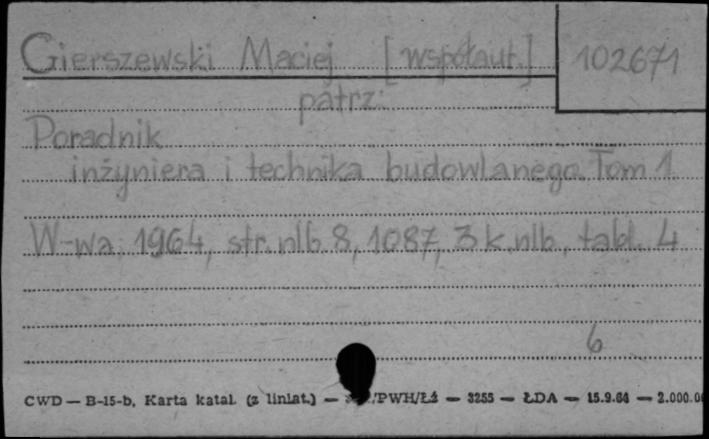 Gierszewski Maciej [współaut.] 102671
patrz:
Poradnik
inżyniera i technika budowlanego. Tom 1.
W-wa, 1964, str. nlb. 8, 1087, 3 k. nlb., tabl. 4
6
CWD — B-15-b, Karta katal. (z liniat.) — /PWH/Łż — 3255 — ŁDA — 15.9.64 — 2.000.0